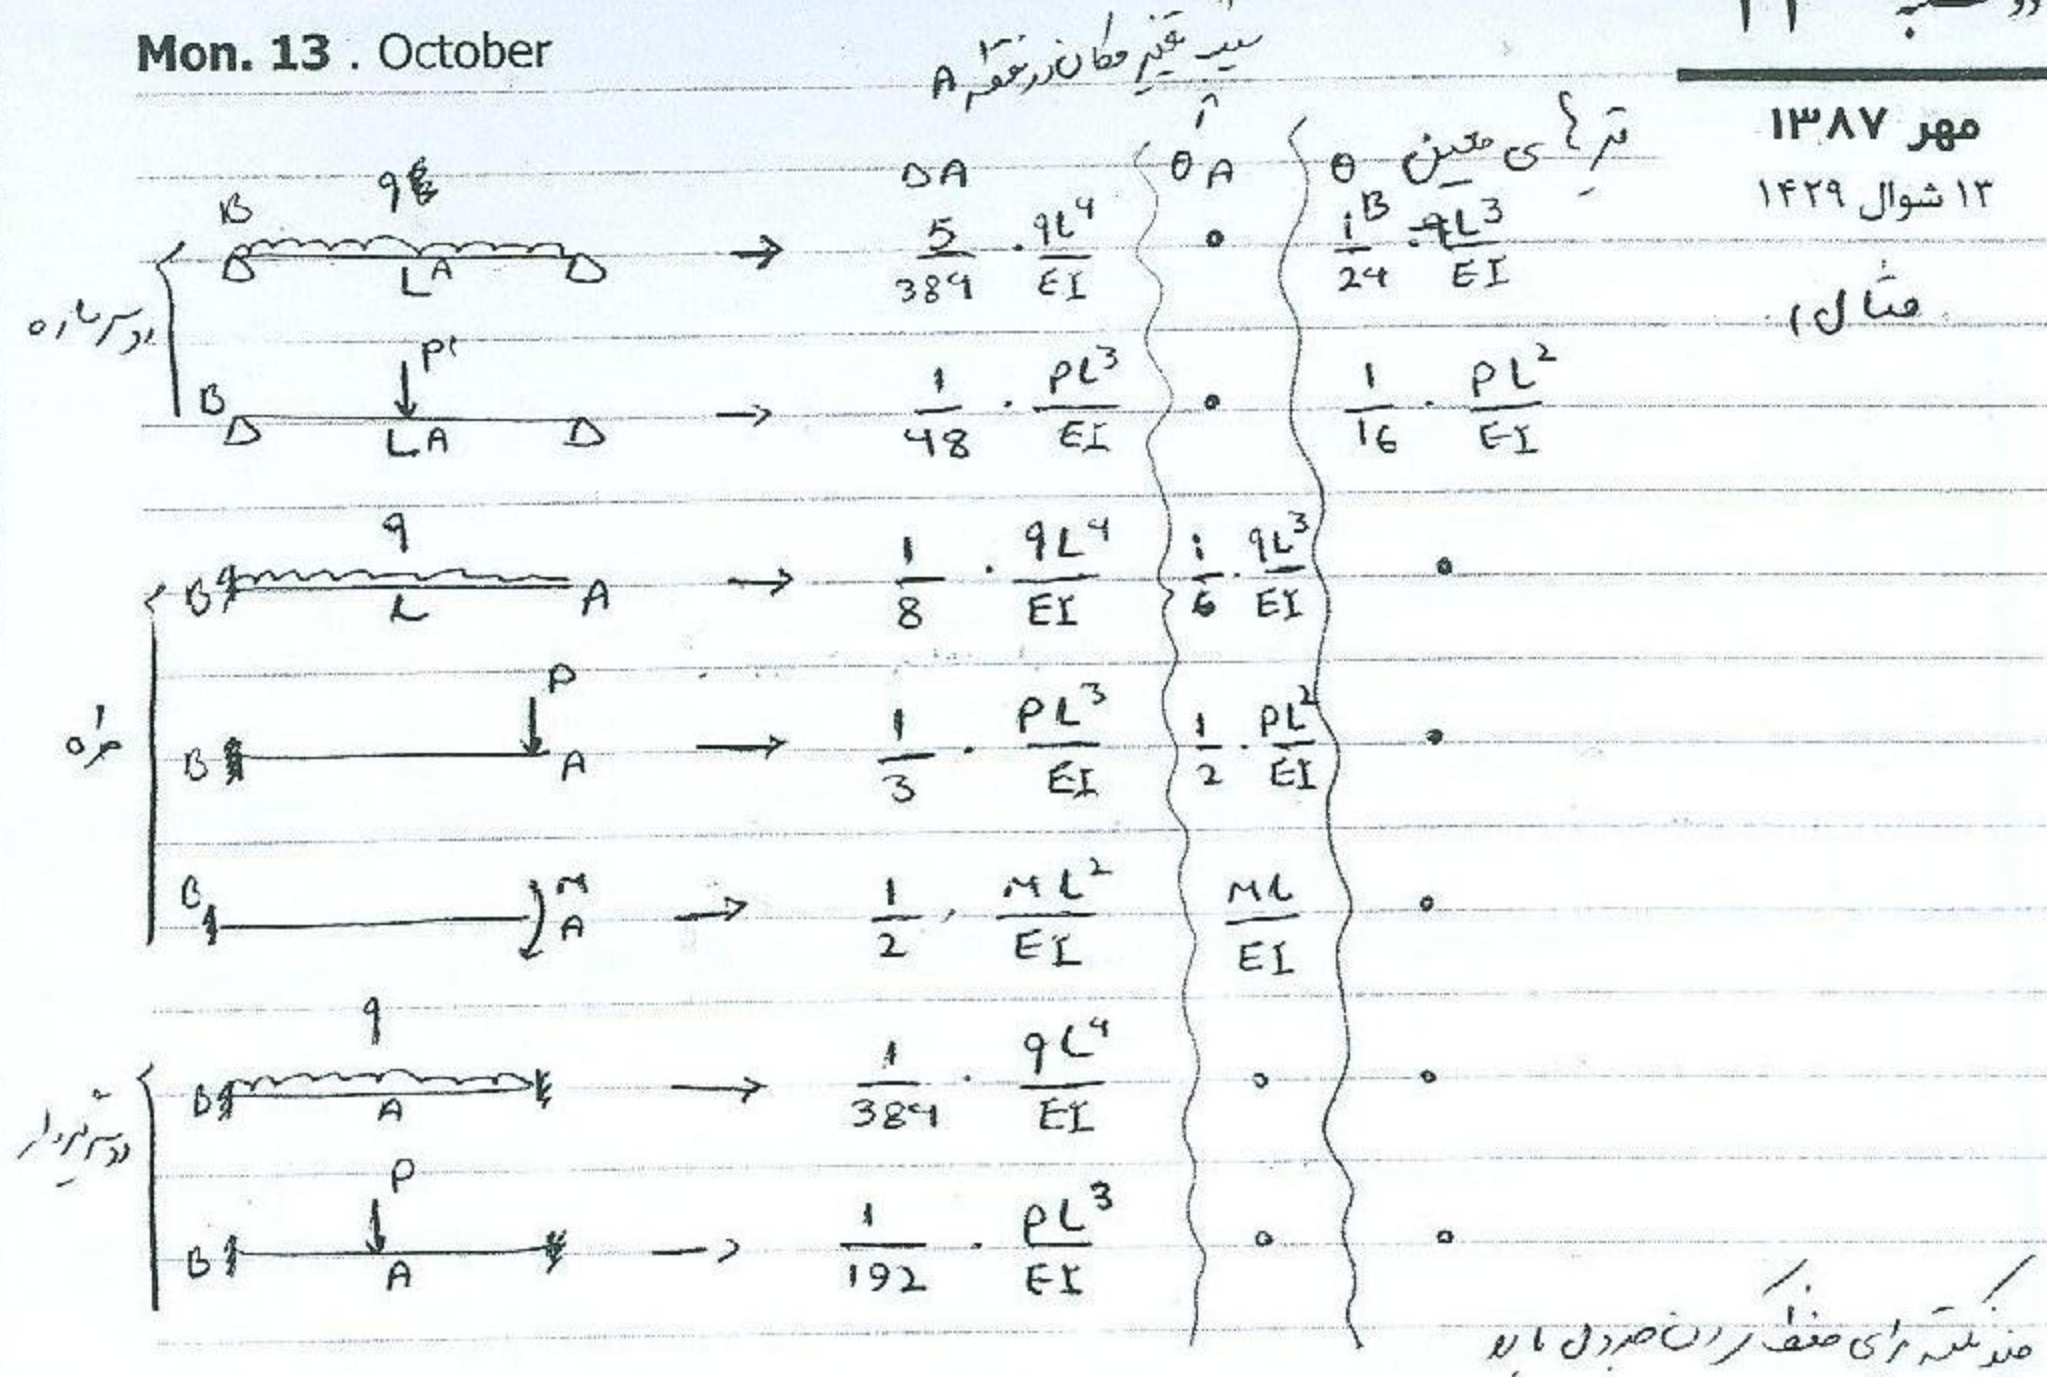 Mon. 13 . October
مهر ۱۳۸۷
۱۳ شوال ۱۴۲۹
مثال،
شیب تغییر مکان در نقطه A
ΔA θA θB تیرهای معین
دو سر ساده
B q L A → 5/384 . qL⁴/EI ० 1/24 . qL³/EI
B P L A → 1/48 . PL³/EI ० 1/16 . PL²/EI
طره
B q L A → 1/8 . qL⁴/EI 1/6 . qL³/EI ०
B P A → 1/3 . PL³/EI 1/2 . PL²/EI ०
B M A → 1/2 . ML²/EI ML/EI ०
دو سر گیردار
B q A → 1/384 . qL⁴/EI ० ०
B P A → 1/192 . PL³/EI ० ०
چند نکته برای حفظ کردن جدول بالا